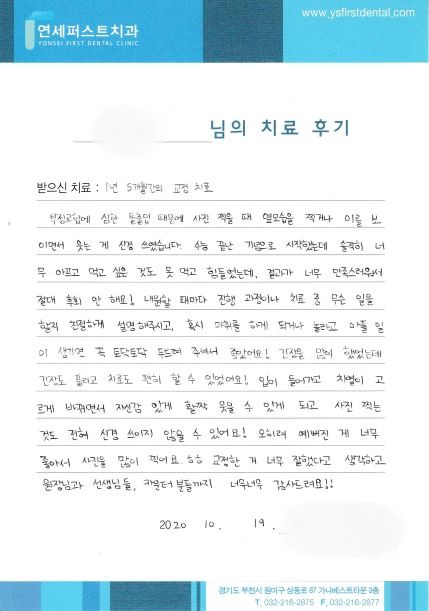 www.ysfirstdental.com
연세퍼스트치과
YONSEI FIRST DENTAL CLINIC
님의 치료 후기
받으신 치료 : 1년 5개월간의 교정 치료
부정교합에 심한 돌출입 때문에 사진 찍을 때 옆모습을 찍거나 이를 보
이면서 웃는 게 신경 쓰였습니다. 수능 끝난 기념으로 시작했는데 솔직히 너
무 아프고 먹고 싶은 것도 못 먹고 힘들었는데, 결과가 너무 만족스러워서
절대 후회 안 해요! 내원할 때마다 진행 과정이나 치료 중 무슨 일을
할지 친절하게 설명해주시고, 혹시 마취를 하게 되거나 놀라고 아플 일
이 생기면 꼭 토닥토닥 두드려 주셔서 좋았어요! 긴장을 많이 했었는데
긴장도 풀리고 치료도 편히 할 수 있었어요! 입이 들어가고 치열이 고
르게 바뀌면서 자신감 있게 활짝 웃을 수 있게 되고 사진 찍는
것도 전혀 신경 쓰이지 않을 수 있어요! 오히려 예뻐진 게 너무
좋아서 사진을 많이 찍어요.ㅎㅎ 교정한 거 너무 잘했다고 생각하고
원장님과 선생님들, 카운터 분들까지 너무너무 감사드려요!!
2020 10. 19.
경기도 부천시 원미구 상동로 87 가나베스트타운 3층
T. 032-216-2875 F. 032-216-2877